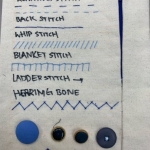 BACK STITCH
WHIP STITCH
BLANKET STITCH
LADDER STITCH →
HERRING BONE